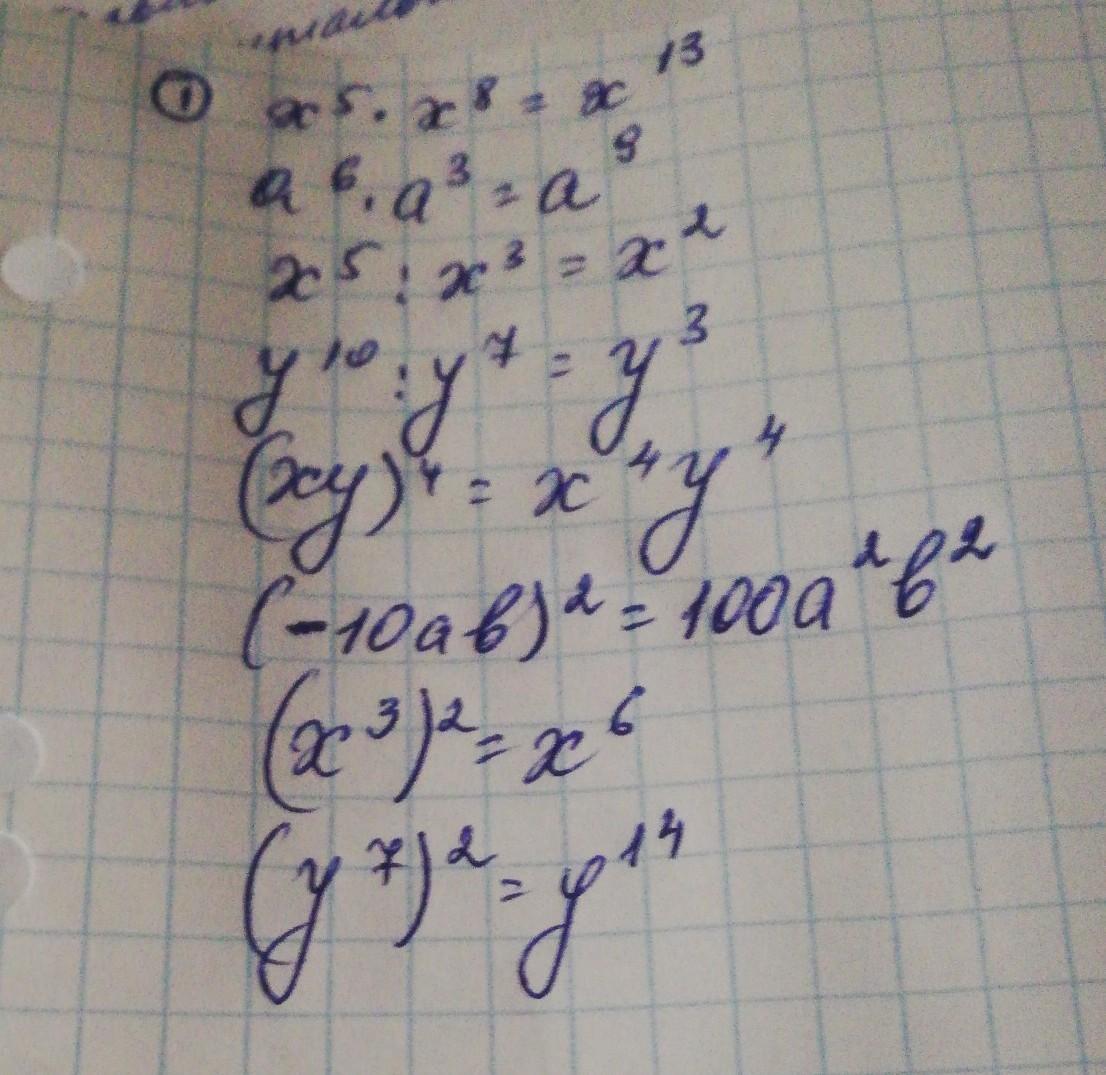 ① x⁵ · x⁸ = x¹³
a⁶ · a³ = a⁹
x⁵ : x³ = x²
y¹⁰ : y⁷ = y³
(xy)⁴ = x⁴y⁴
(-10aв)² = 100a²в²
(x³)² = x⁶
(y⁷)² = y¹⁴